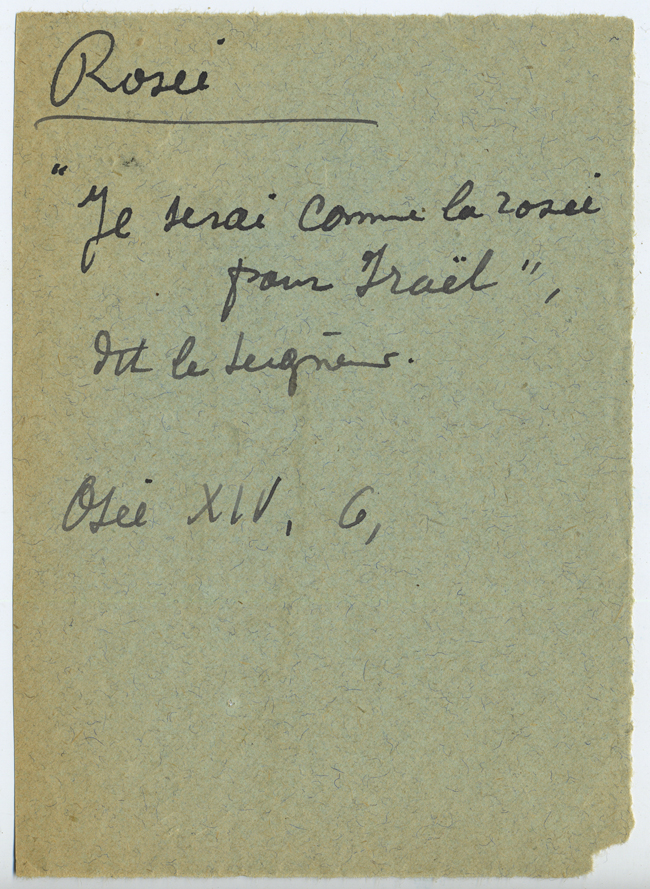 Rosée
"Je serai comme la rosée
pour Israël",
dit le Seigneur.
Osée XIV, 6,